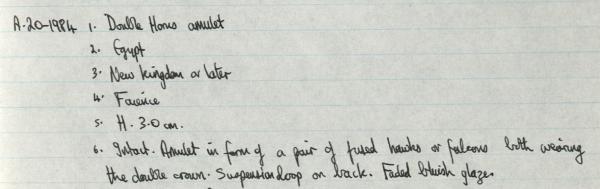 A.20-1984 1. Double Horus amulet
2. Egypt
3. New Kingdom or later
4. Faience
5. H. 3.0 cm.
6. Intact. Amulet in form of a pair of fused hawks or falcons both wearing
the double crown. Suspension loop on back. Faded bluish glaze.